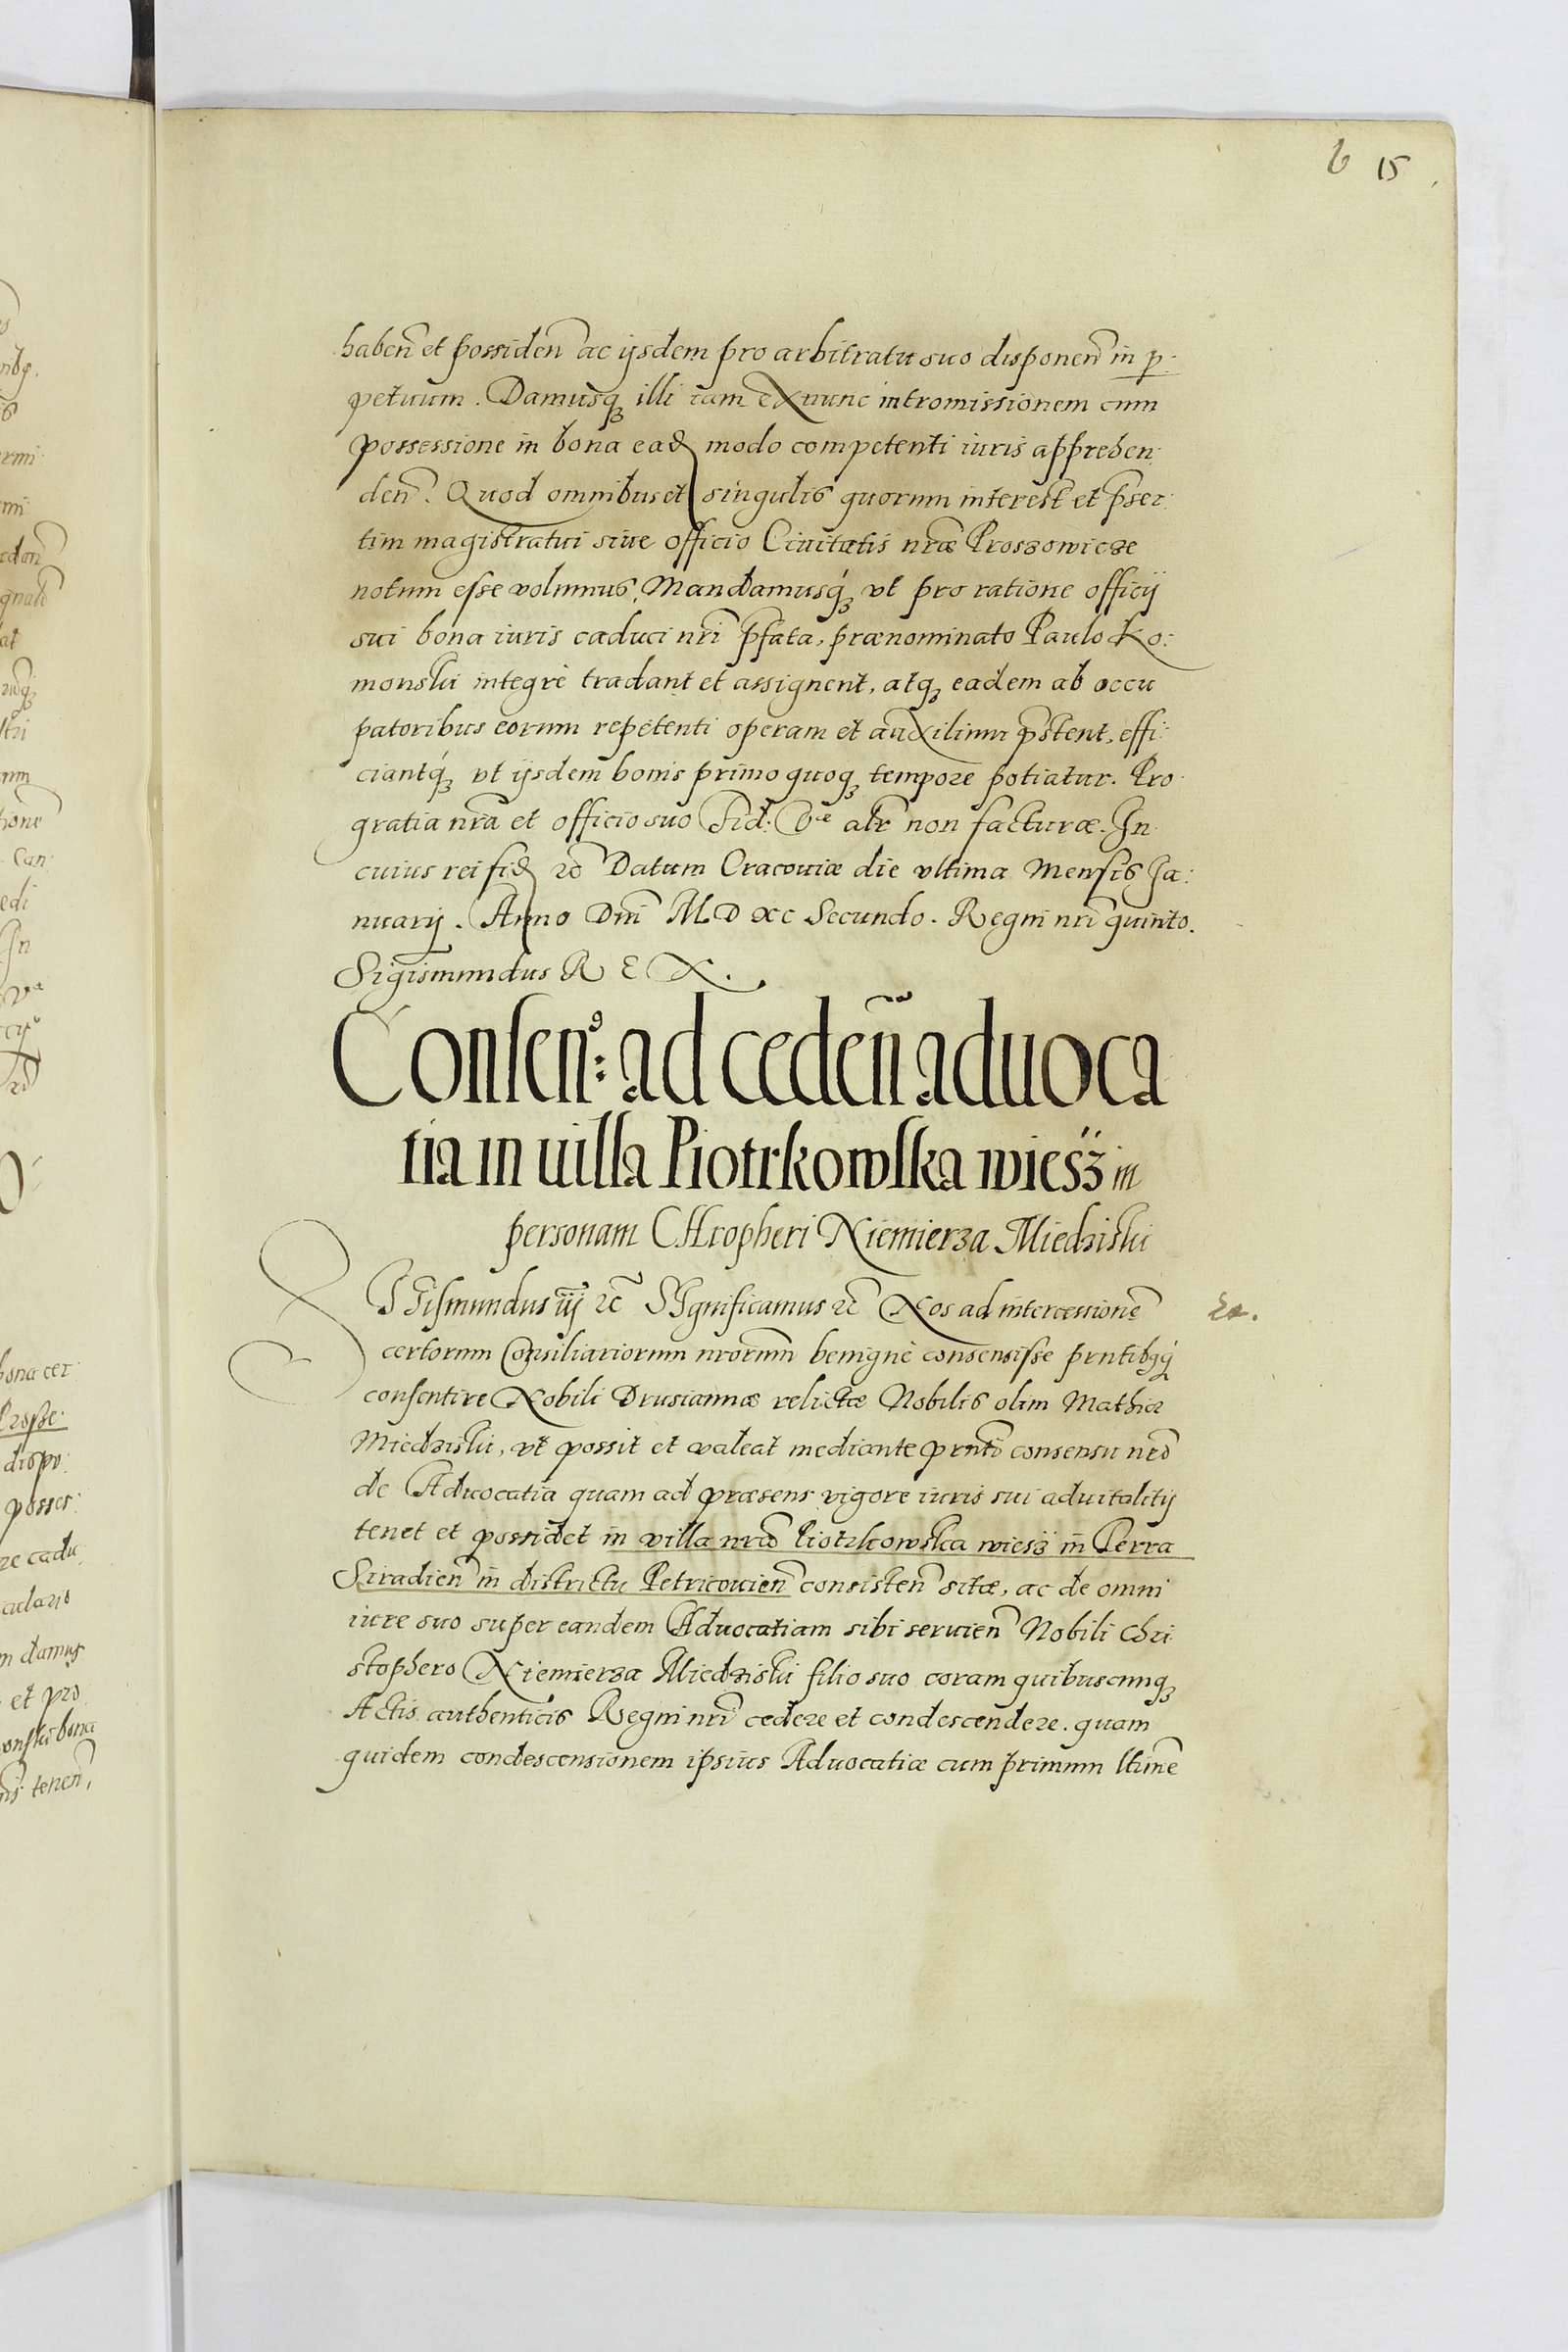 6 15
haben̄ et possiden̄ ac ijsdem pro arbitratu suo disponen̄ in p:
petuum. Damusq́ȝ illi iam ex nunc intromissionem cum
possessione in bona eađ modo competenti iuris apprehen:
den̄. Quod omnibus et singulis quorum interest et p̄ser:
tim magistratui siue officio Ciuitatis nr̄æ Proszowicze
notum esse volumus, Mandamusq́ȝ vt pro ratione officij
sui bona iuris caduci nr̄i p̄fata, prænominato Paulo Ko:
monski integrè tradant et assignent, atqȝ eadem ab occu
patoribus eorum repetenti operam et auxilium p̄stent, effi:
ciantq́ȝ vt ijsdem bonis primo quoqȝ tempore potiatur. Pro
gratia nr̄a et officio suo Fid: Væ alr̄ non facturæ. In
cuius rei fiđ ꝛc̄ Datum Cracouiæ die vltima Mensis Ja:
nuarij. Anno Dn̄i M D XC Secundo. Regni nr̄i quinto.
Sigismundus R E X.
Consen⁹: ad ceden̄ aduoca
tia in uilla Piotrkowska wiesz in
personam CHropheri Niemierza Miedziski
SIGismundus iij ꝛc̄ SIgnificamus ꝛc̄ Nos ad intercessionē
certorum Consiliariorum nrōrum benignè consensisse prntibȝq́
consentire Nobili Drusiannæ relictæ Nobilis olim Mathiæ
Miedziski, vt possit et valeat mediante prntī consensu nrō
de Aduocatia quam ad præsens vigore iuris sui aduitalitij
tenet et possidet in villa nrā Piotrkowska wiesz in Terra
Siradien̄ in districtu Petricouien̄ consisten̄ sitæ, ac de omni
iure suo super eandem Aduocatiam sibi seruien̄ Nobili Chri
stophero Niemierza Miedziski filio suo coram quibuscunqȝ
Actis authenticis Regni nr̄i cedere et condescendere. quam
quidem condescensionem ipsius Aduocatiæ cum primum ltimē